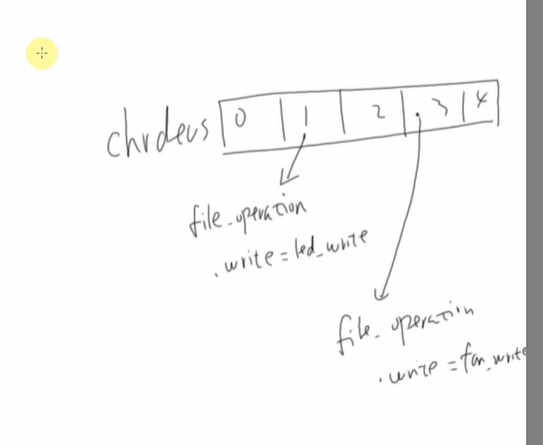 chrdevs 0 1 2 3 4
file_operation
.write=led_write
file_operation
.write=fan_write